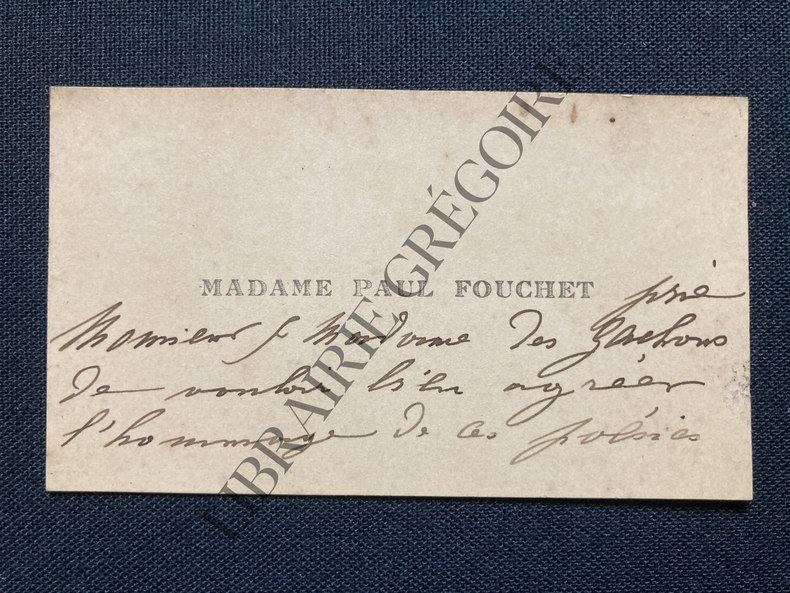 MADAME PAUL FOUCHET
prie
Monsieur & Madame des Gachons
de vouloir bien agréer
l'hommage de ces poésies
LIBRAIRIE GRÉGOIRE